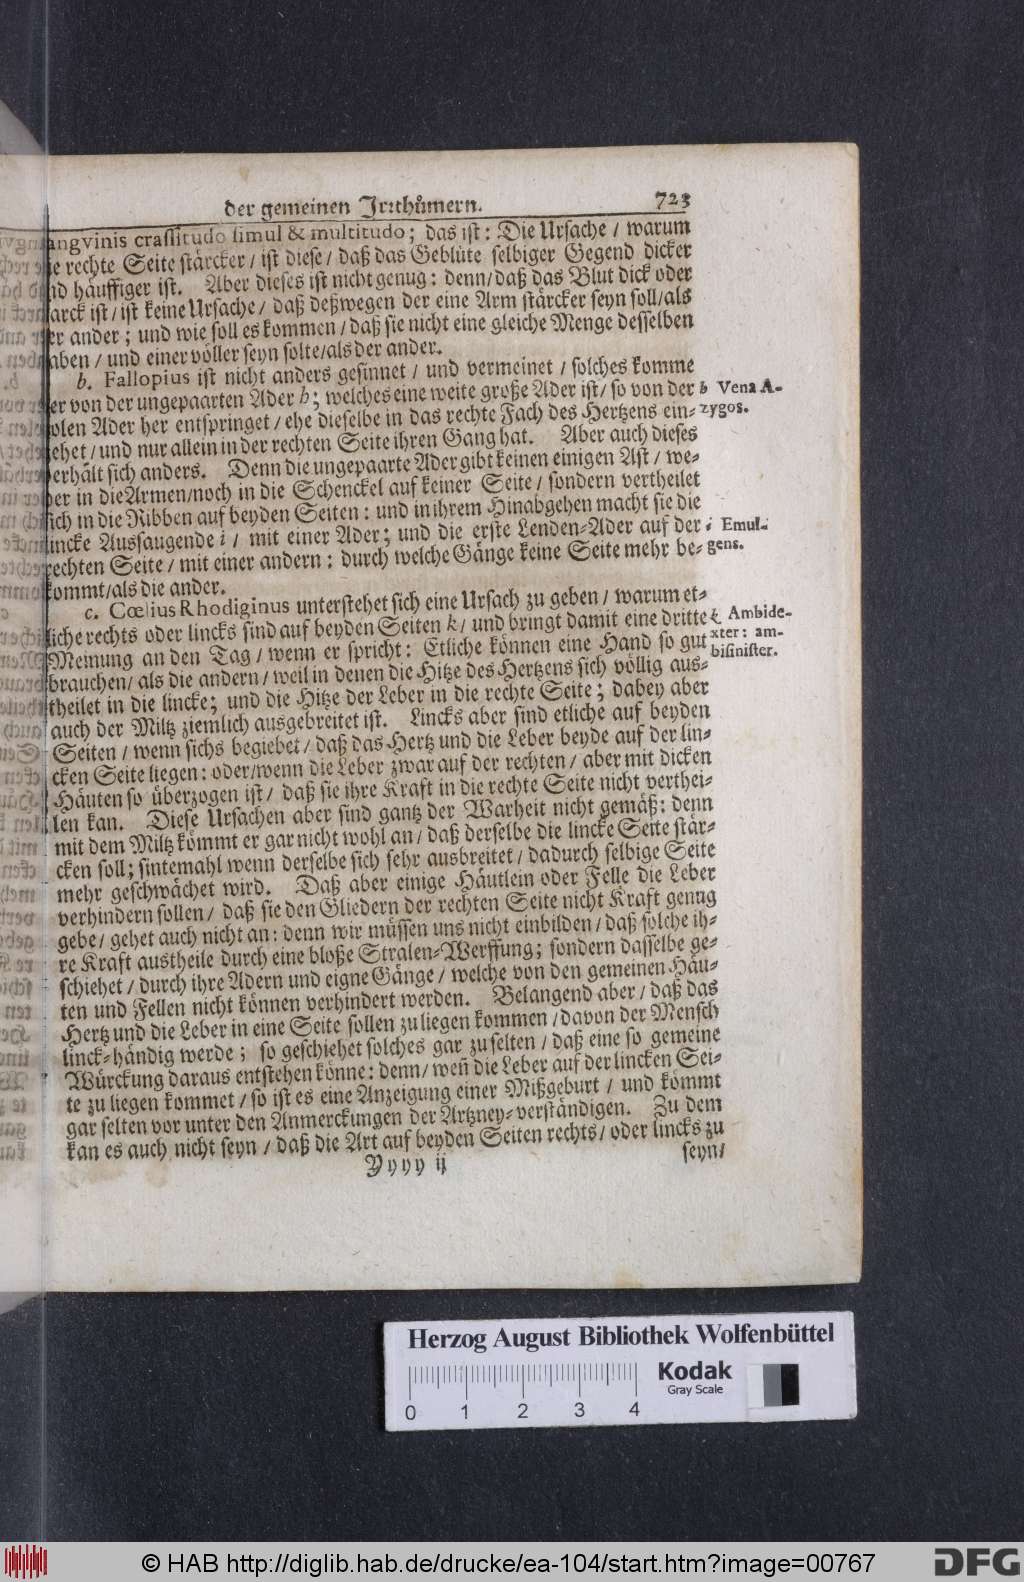 der gemeinen Jrrthůmern. 723
angvinis crassitudo simul & multitudo; das ist: Die Ursache / warum
rechte Seite stärcker / ist diese / daß das Geblüte selbiger Gegend dicker
häuffiger ist. Aber dieses ist nicht genug: denn / daß das Blut dick oder
arck ist / ist keine Ursache / daß deßwegen der eine Arm stärcker seyn soll / als
er ander; und wie soll es kommen / daß sie nicht eine gleiche Menge desselben
aben / und einer völler seyn solte / als der ander.
b. Fallopius ist nicht anders gesinnet / und vermeinet / solches komme
er von der ungepaarten Ader h; welches eine weite große Ader ist / so von der
olen Ader her entspringet / ehe dieselbe in das rechte Fach des Hertzens ein-
ehet / und nur allein in der rechten Seite ihren Gang hat. Aber auch dieses
erhält sich anders. Denn die ungepaarte Ader gibt keinen einigen Ast / we-
er in die Armen / noch in die Schenckel auf keiner Seite / sondern vertheilet
sich in die Ribben auf beyden Seiten: und in ihrem Hinabgehen macht sie die
lincke Aussaugende i / mit einer Ader; und die erste Lenden-Ader auf der
rechten Seite / mit einer andern: durch welche Gänge keine Seite mehr be-
kommt / als die ander.
h Vena A-
zygos.
i Emul-
gens.
c. Cœlius Rhodiginus unterstehet sich eine Ursach zu geben / warum et-
liche rechts oder lincks sind auf beyden Seiten k / und bringt damit eine dritte
Meinung an den Tag / wenn er spricht: Etliche können eine Hand so gut
brauchen / als die andern / weil in denen die Hitze des Hertzens sich völlig aus-
theilet in die lincke; und die Hitze der Leber in die rechte Seite; dabey aber
auch der Miltz ziemlich ausgebreitet ist. Lincks aber sind etliche auf beyden
Seiten / wenn sichs begiebet / daß das Hertz und die Leber beyde auf der lin-
cken Seite liegen: oder / wenn die Leber zwar auf der rechten / aber mit dicken
Häuten so überzogen ist / daß sie ihre Kraft in die rechte Seite nicht verthei-
len kan. Diese Ursachen aber sind gantz der Warheit nicht gemäß: denn
mit dem Miltz kömmt er gar nicht wohl an / daß derselbe die lincke Seite stär-
cken soll; sintemahl wenn derselbe sich sehr ausbreitet / dadurch selbige Seite
mehr geschwächet wird. Daß aber einige Häutlein oder Felle die Leber
verhindern sollen / daß sie den Gliedern der rechten Seite nicht Kraft genug
gebe / gehet auch nicht an: denn wir müssen uns nicht einbilden / daß solche ih-
re Kraft austheile durch eine bloße Stralen-Werffung; sondern dasselbe ge-
schiehet / durch ihre Adern und eigne Gänge / welche von den gemeinen Häu-
ten und Fellen nicht können verhindert werden. Belangend aber / daß das
Hertz und die Leber in eine Seite sollen zu liegen kommen / davon der Mensch
linck-händig werde; so geschiehet solches gar zu selten / daß eine so gemeine
Würckung daraus entstehen könne: denn / weñ die Leber auf der lincken Sei-
te zu liegen kommet / so ist es eine Anzeigung einer Mißgeburt / und kömmt
gar selten vor unter den Anmerckungen der Artzney-verständigen. Zu dem
kan es auch nicht seyn / daß die Art auf beyden Seiten rechts / oder lincks zu
k Ambide-
xter: am-
bisinister.
Yyyy ij seyn /
Herzog August Bibliothek Wolfenbüttel
Kodak
Gray Scale
0 1 2 3 4
© HAB http://diglib.hab.de/drucke/ea-104/start.htm?image=00767
DFG